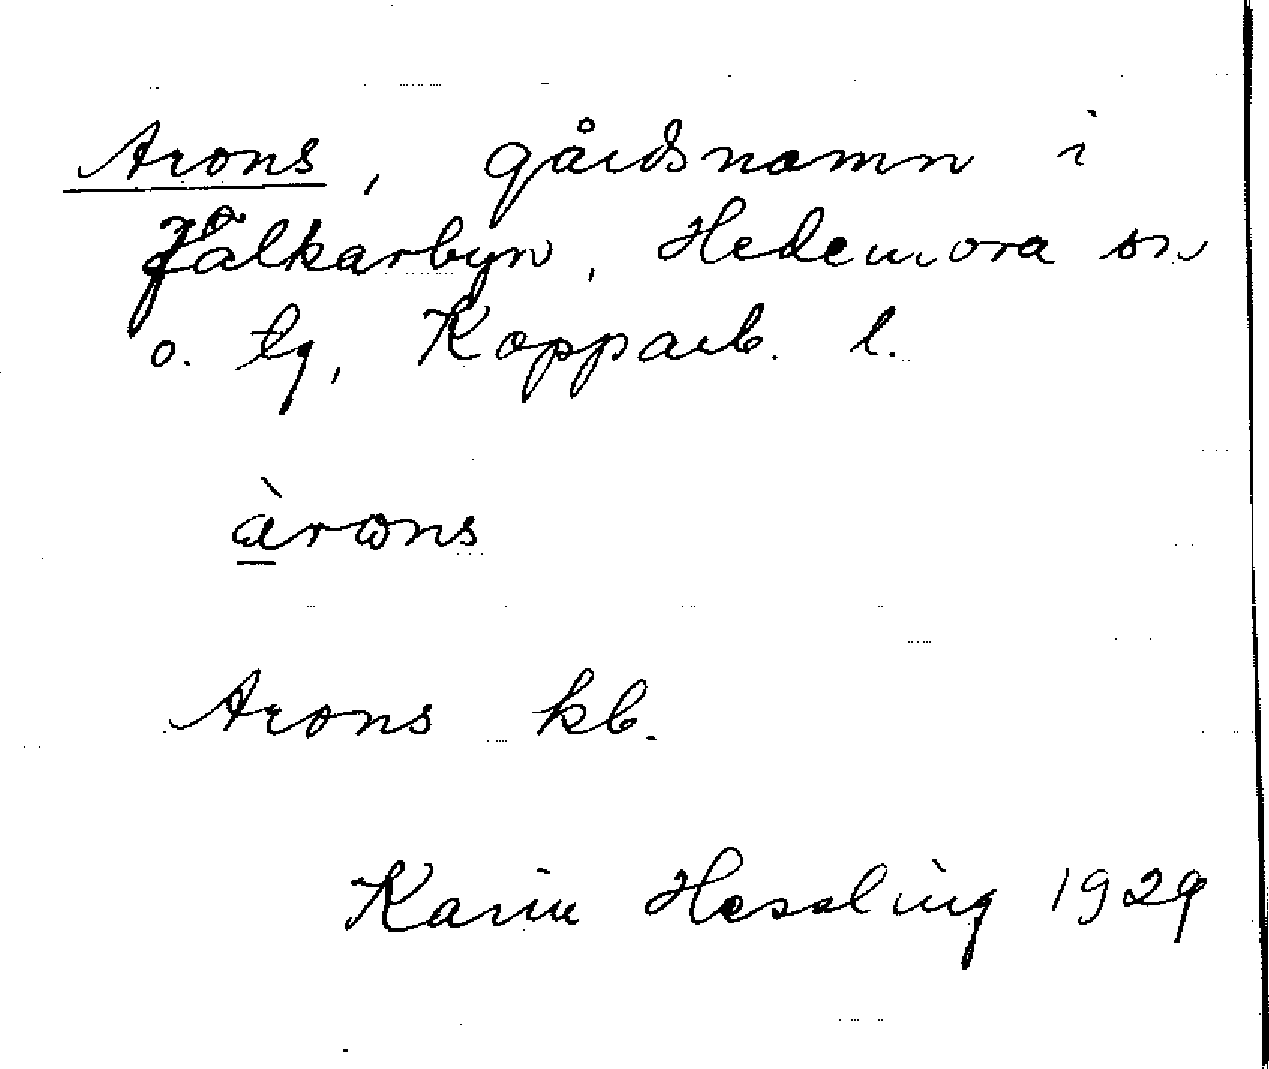 Arons, gårdsnamn i
Jälkarbyn, Hedemora sn
o. tg, Kopparb. l.
àrons
Arons kb.
Karin Hessling 1929